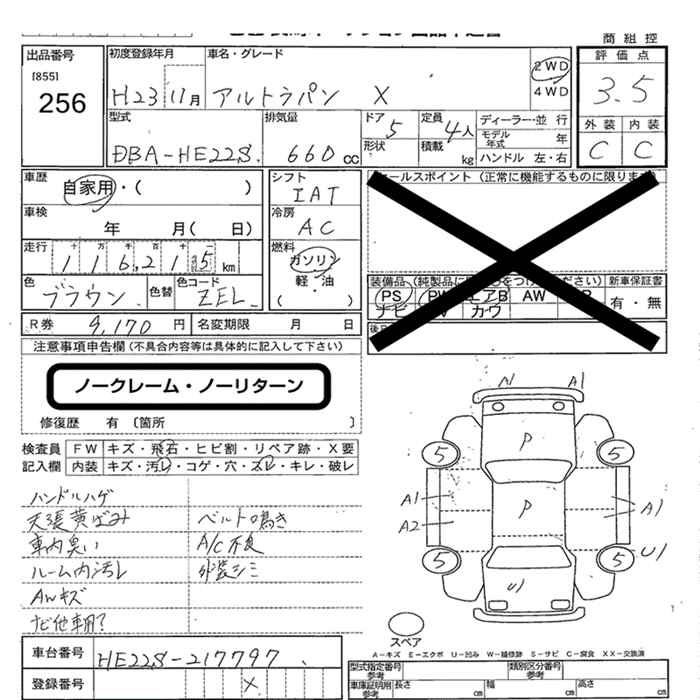 商 組 控
出品番号
[855]
256
初度登録年月
H23 11月
車名・グレード
アルトラパン X
2WD
4WD
評 価 点
3.5
外 装 内 装
C C
型式
DBA-HE22S
排気量
660 cc
ドア 5
形状
定員 4人
積載 kg
ディーラー・並 行
モデル年式 年
ハンドル 左・右
車歴
自家用・( )
車検
年 月( 日)
走行
116,215 km
色
ブラウン
色替
色コード
ZEL
シフト
IAT
冷房
AC
燃料
ガソリン
軽・油
( )
セールスポイント (正常に機能するものに限ります
装備品
新車保証書
PS PW エアB AW
ナビ カワ
有・無
R券 9,170 円
名変期限 月 日
注意事項申告欄 (不具合内容等は具体的に記入して下さい)
ノークレーム・ノーリターン
修復歴 有 〔箇所 〕
検査員
記入欄
FW キズ・飛石・ヒビ割・リペア跡・X要
内装 キズ・汚レ・コゲ・穴・スレ・キレ・破レ
ハンドルハゲ
天張黄ばみ ベルト鳴き
車内臭い A/C不良
ルーム内汚レ 外装シミ
AWキズ
ナビ他車用?
A1 A1
P
5 5
A1 P A1
A2
5 5 U1
U1
スペア
A-キズ E-エクボ U-凹み W-補修跡 S-サビ C-腐食 XX-交換済
車台番号 HE22S-217797
登録番号 X
型式指定番号
参考
類別区分番号
参考
車庫証明用
参考
長さ cm 幅 cm 高さ cm